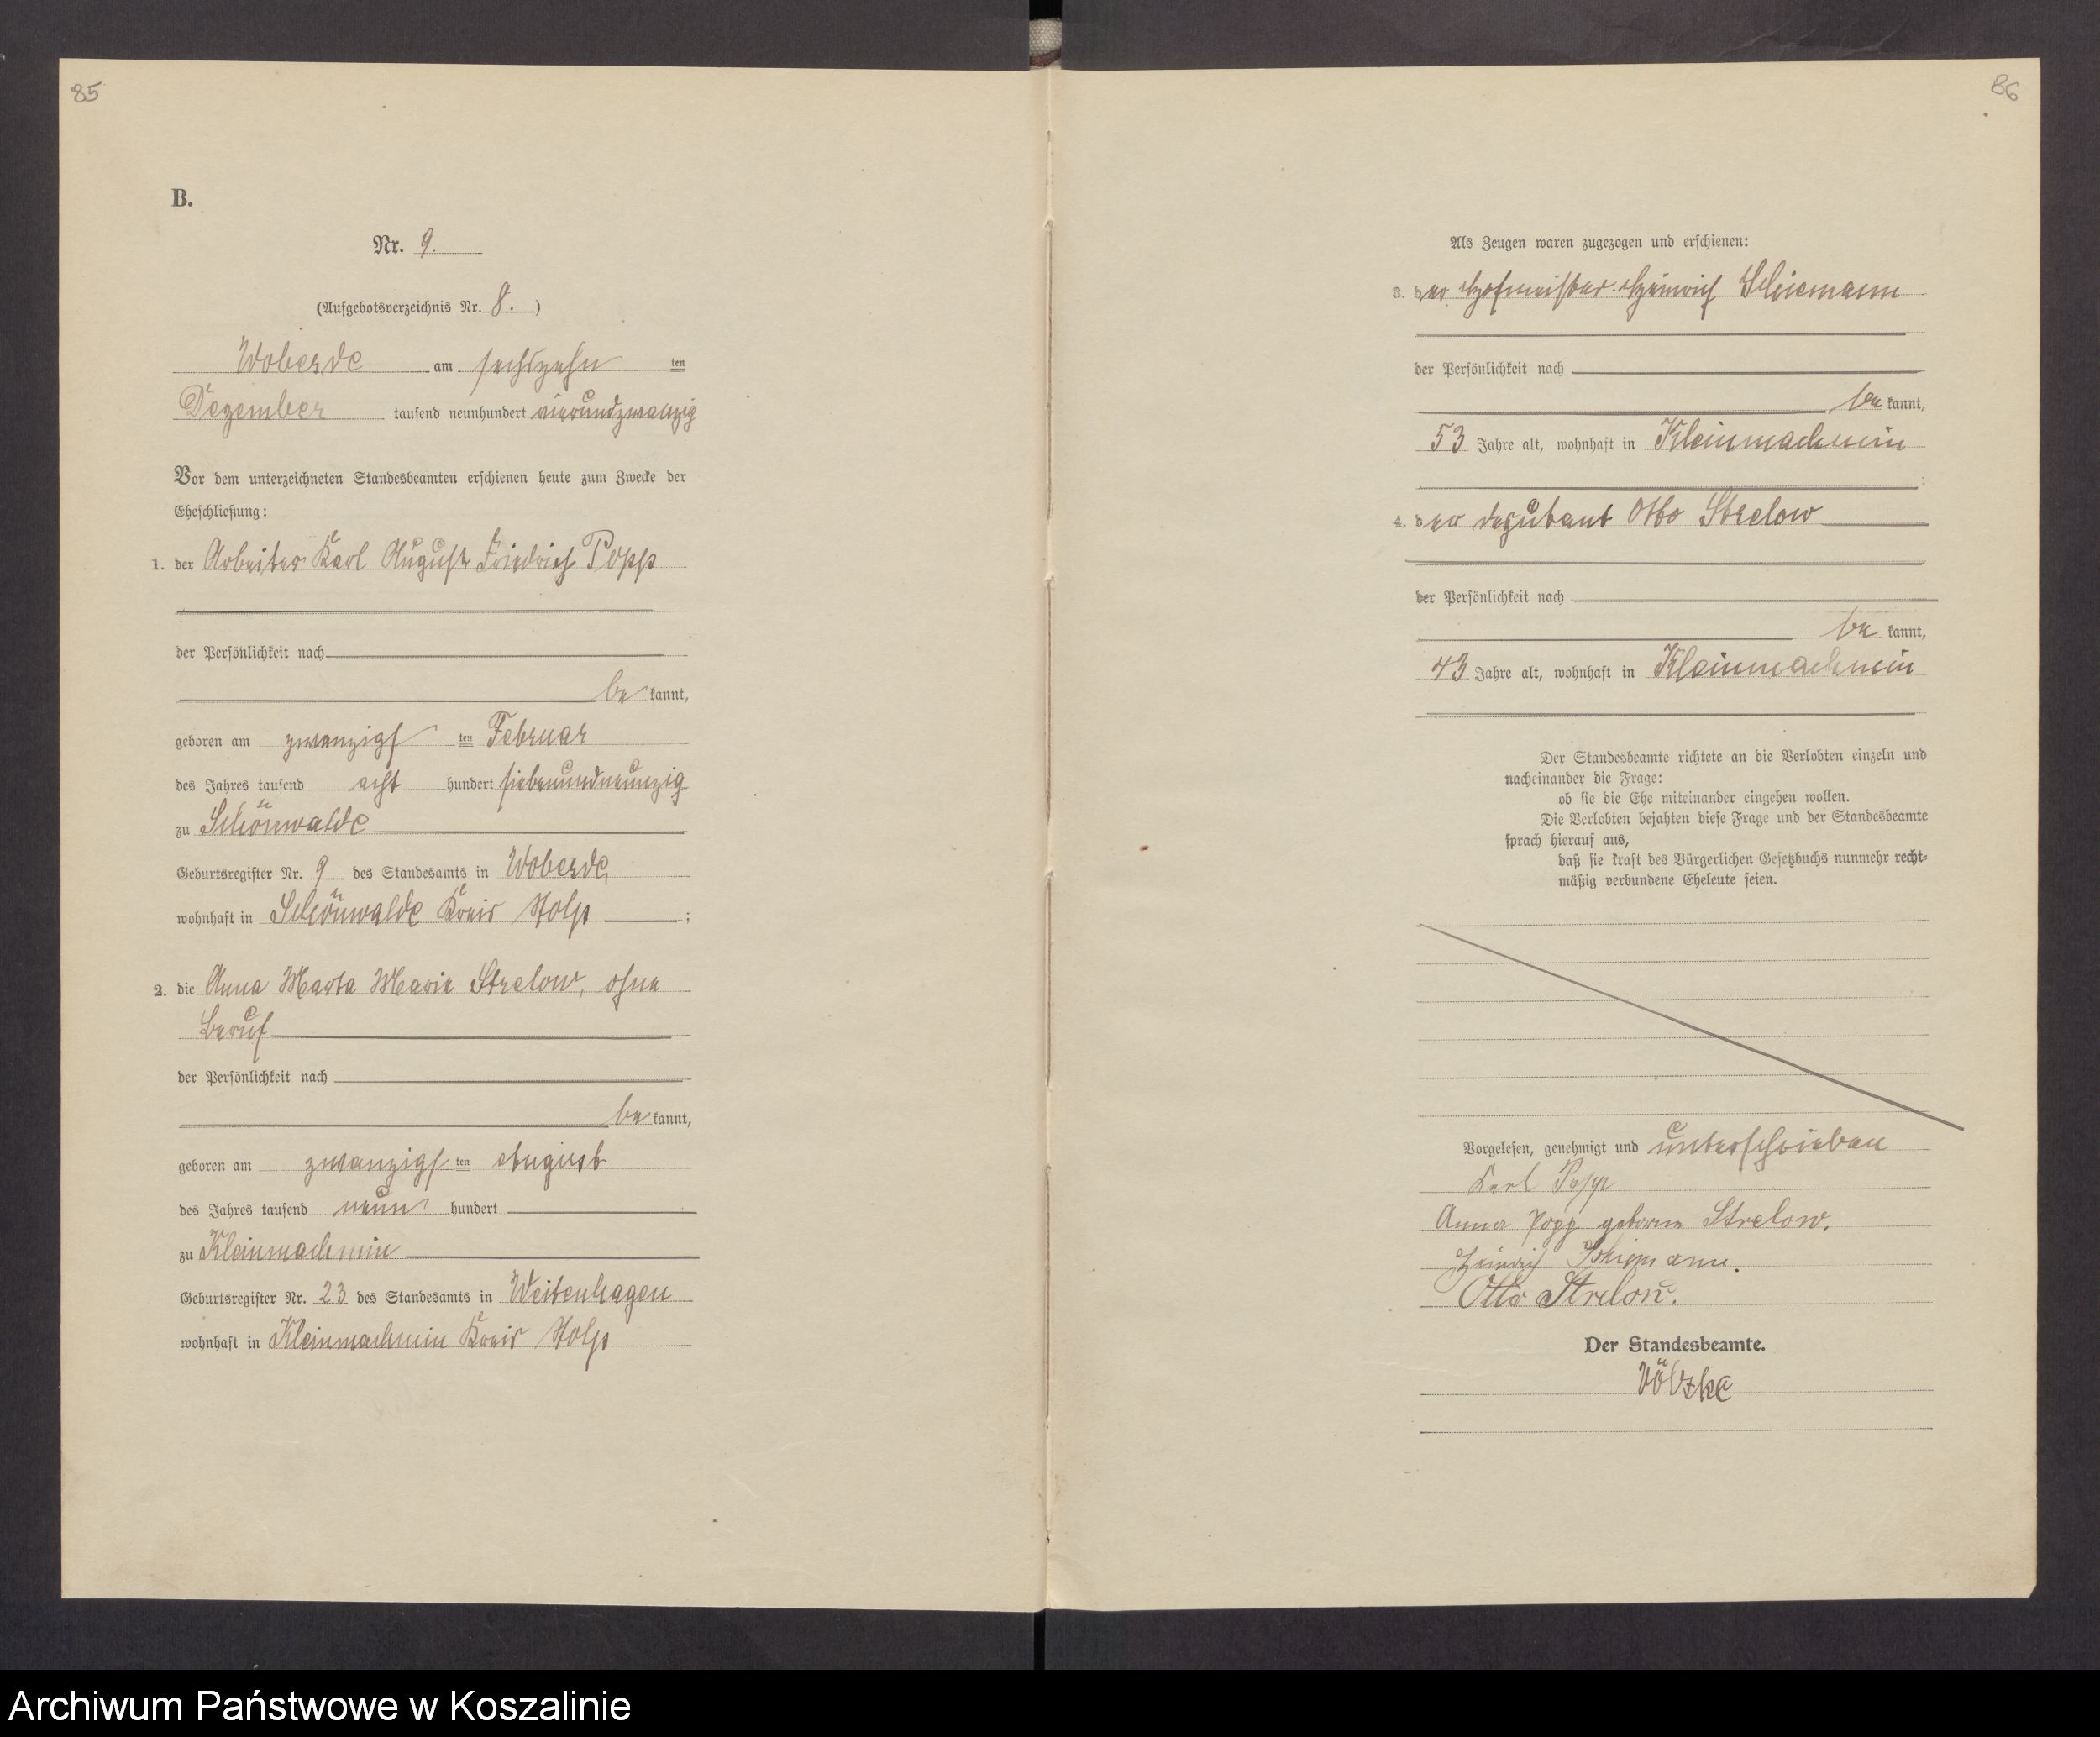 85
B.
Nr. 9.
(Aufgebotsverzeichnis Nr. 8. )
Woberde am sechszehn ten
Dezember tausend neunhundert vierundzwanzig
Vor dem unterzeichneten Standesbeamten erschienen heute zum Zwecke der
Eheschließung:
1. der Arbeiter Karl August Friedrich Popp
der Persönlichkeit nach
be kannt,
geboren am zwanzigs ten Februar
des Jahres tausend acht hundert siebenundneunzig
zu Schönwalde
Geburtsregister Nr. 9 des Standesamts in Woberde,
wohnhaft in Schönwalde Kreis Stolp ;
2. die Anna Marta Marie Strelow, ohne
Beruf
der Persönlichkeit nach
be kannt,
geboren am zwanzigs ten August
des Jahres tausend neun hundert
zu Kleinmachmin
Geburtsregister Nr. 23 des Standesamts in Weitenhagen
wohnhaft in Kleinmachmin Kreis Stolp
86
Als Zeugen waren zugezogen und erschienen:
3. der Hofmeister Heinrich Schiemann
der Persönlichkeit nach
be kannt,
53 Jahre alt, wohnhaft in Kleinmachmin
;
4. der Deputant Otto Strelow
der Persönlichkeit nach
be kannt,
43 Jahre alt, wohnhaft in Kleinmachmin
Der Standesbeamte richtete an die Verlobten einzeln und
nacheinander die Frage:
ob sie die Ehe miteinander eingehen wollen.
Die Verlobten bejahten diese Frage und der Standesbeamte
sprach hierauf aus,
daß sie kraft des Bürgerlichen Gesetzbuchs nunmehr recht-
mäßig verbundene Eheleute seien.
Vorgelesen, genehmigt und unterschrieben
Karl Popp
Anna Popp geborne Strelow.
Heinrich Schiemann.
Otto Strelow.
Der Standesbeamte.
Völzke
Archiwum Państwowe w Koszalinie